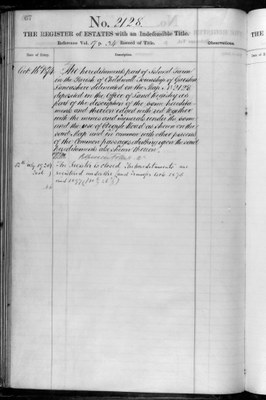 No. 2128.
In the REGISTER of ESTATES with an Indefeasible Title.
Reference Vol. 7 p. Record of Title.
Date of Entry. Description. Observations.
The hereditaments part of Island Farm
in the Parish of Childwall Township of Garston
Lancashire delineated on the Map No. 2128
deposited in the Office of Land Registry as
part of the description of the same heredita-
ments and thereon edged with red together
with the mines and minerals under the same
and the use of Brought Road as shown on the
said Map and in common with other persons
of the Common passages abutting upon the said
hereditaments also shewn thereon.
The Register is closed. The hereditaments are
registered under the Land Transfer Acts 1875
and 1897